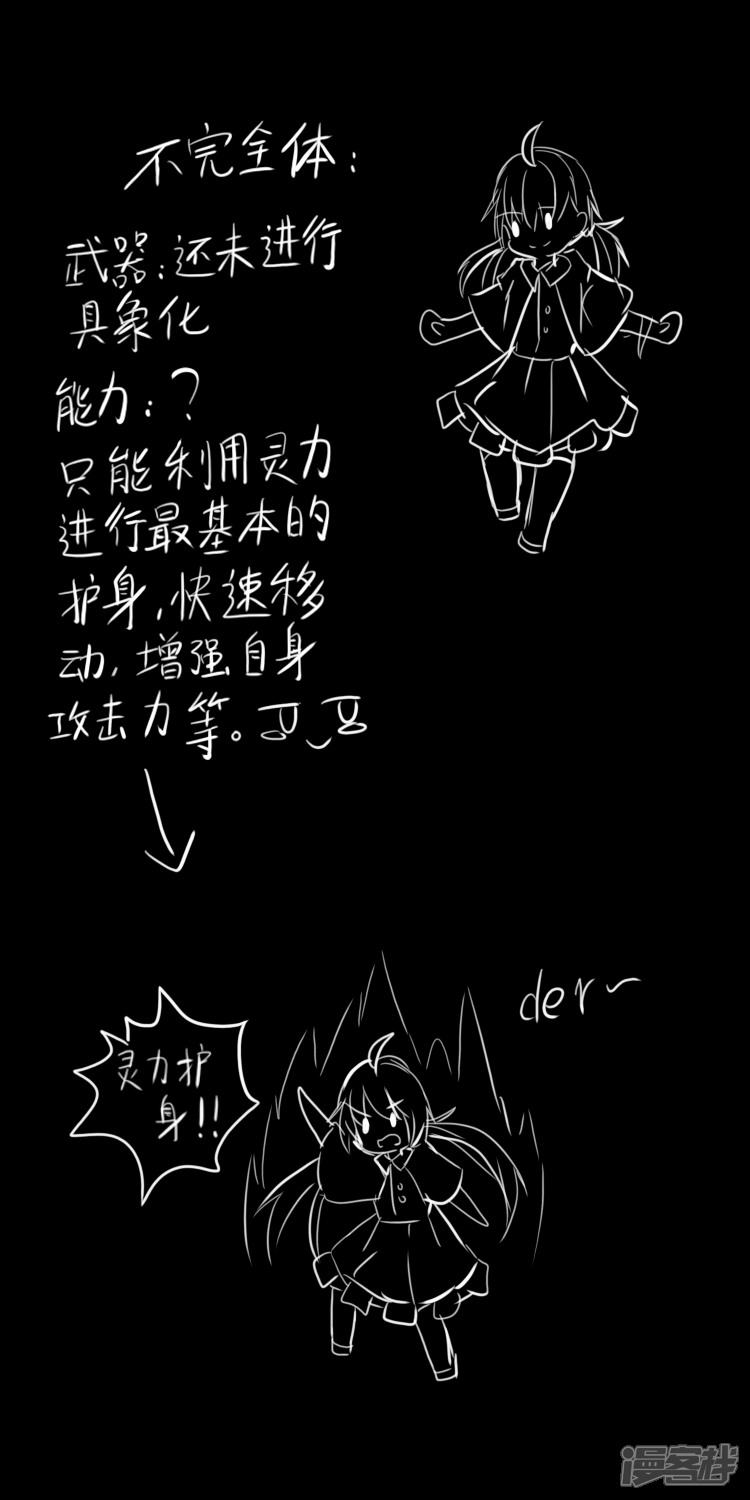 不完全体：
武器：还未进行
具象化
能力：？
只能利用灵力
进行最基本的
护身，快速移
动，增强自身
攻击力等。
der~
灵力护
身!!
漫客栈